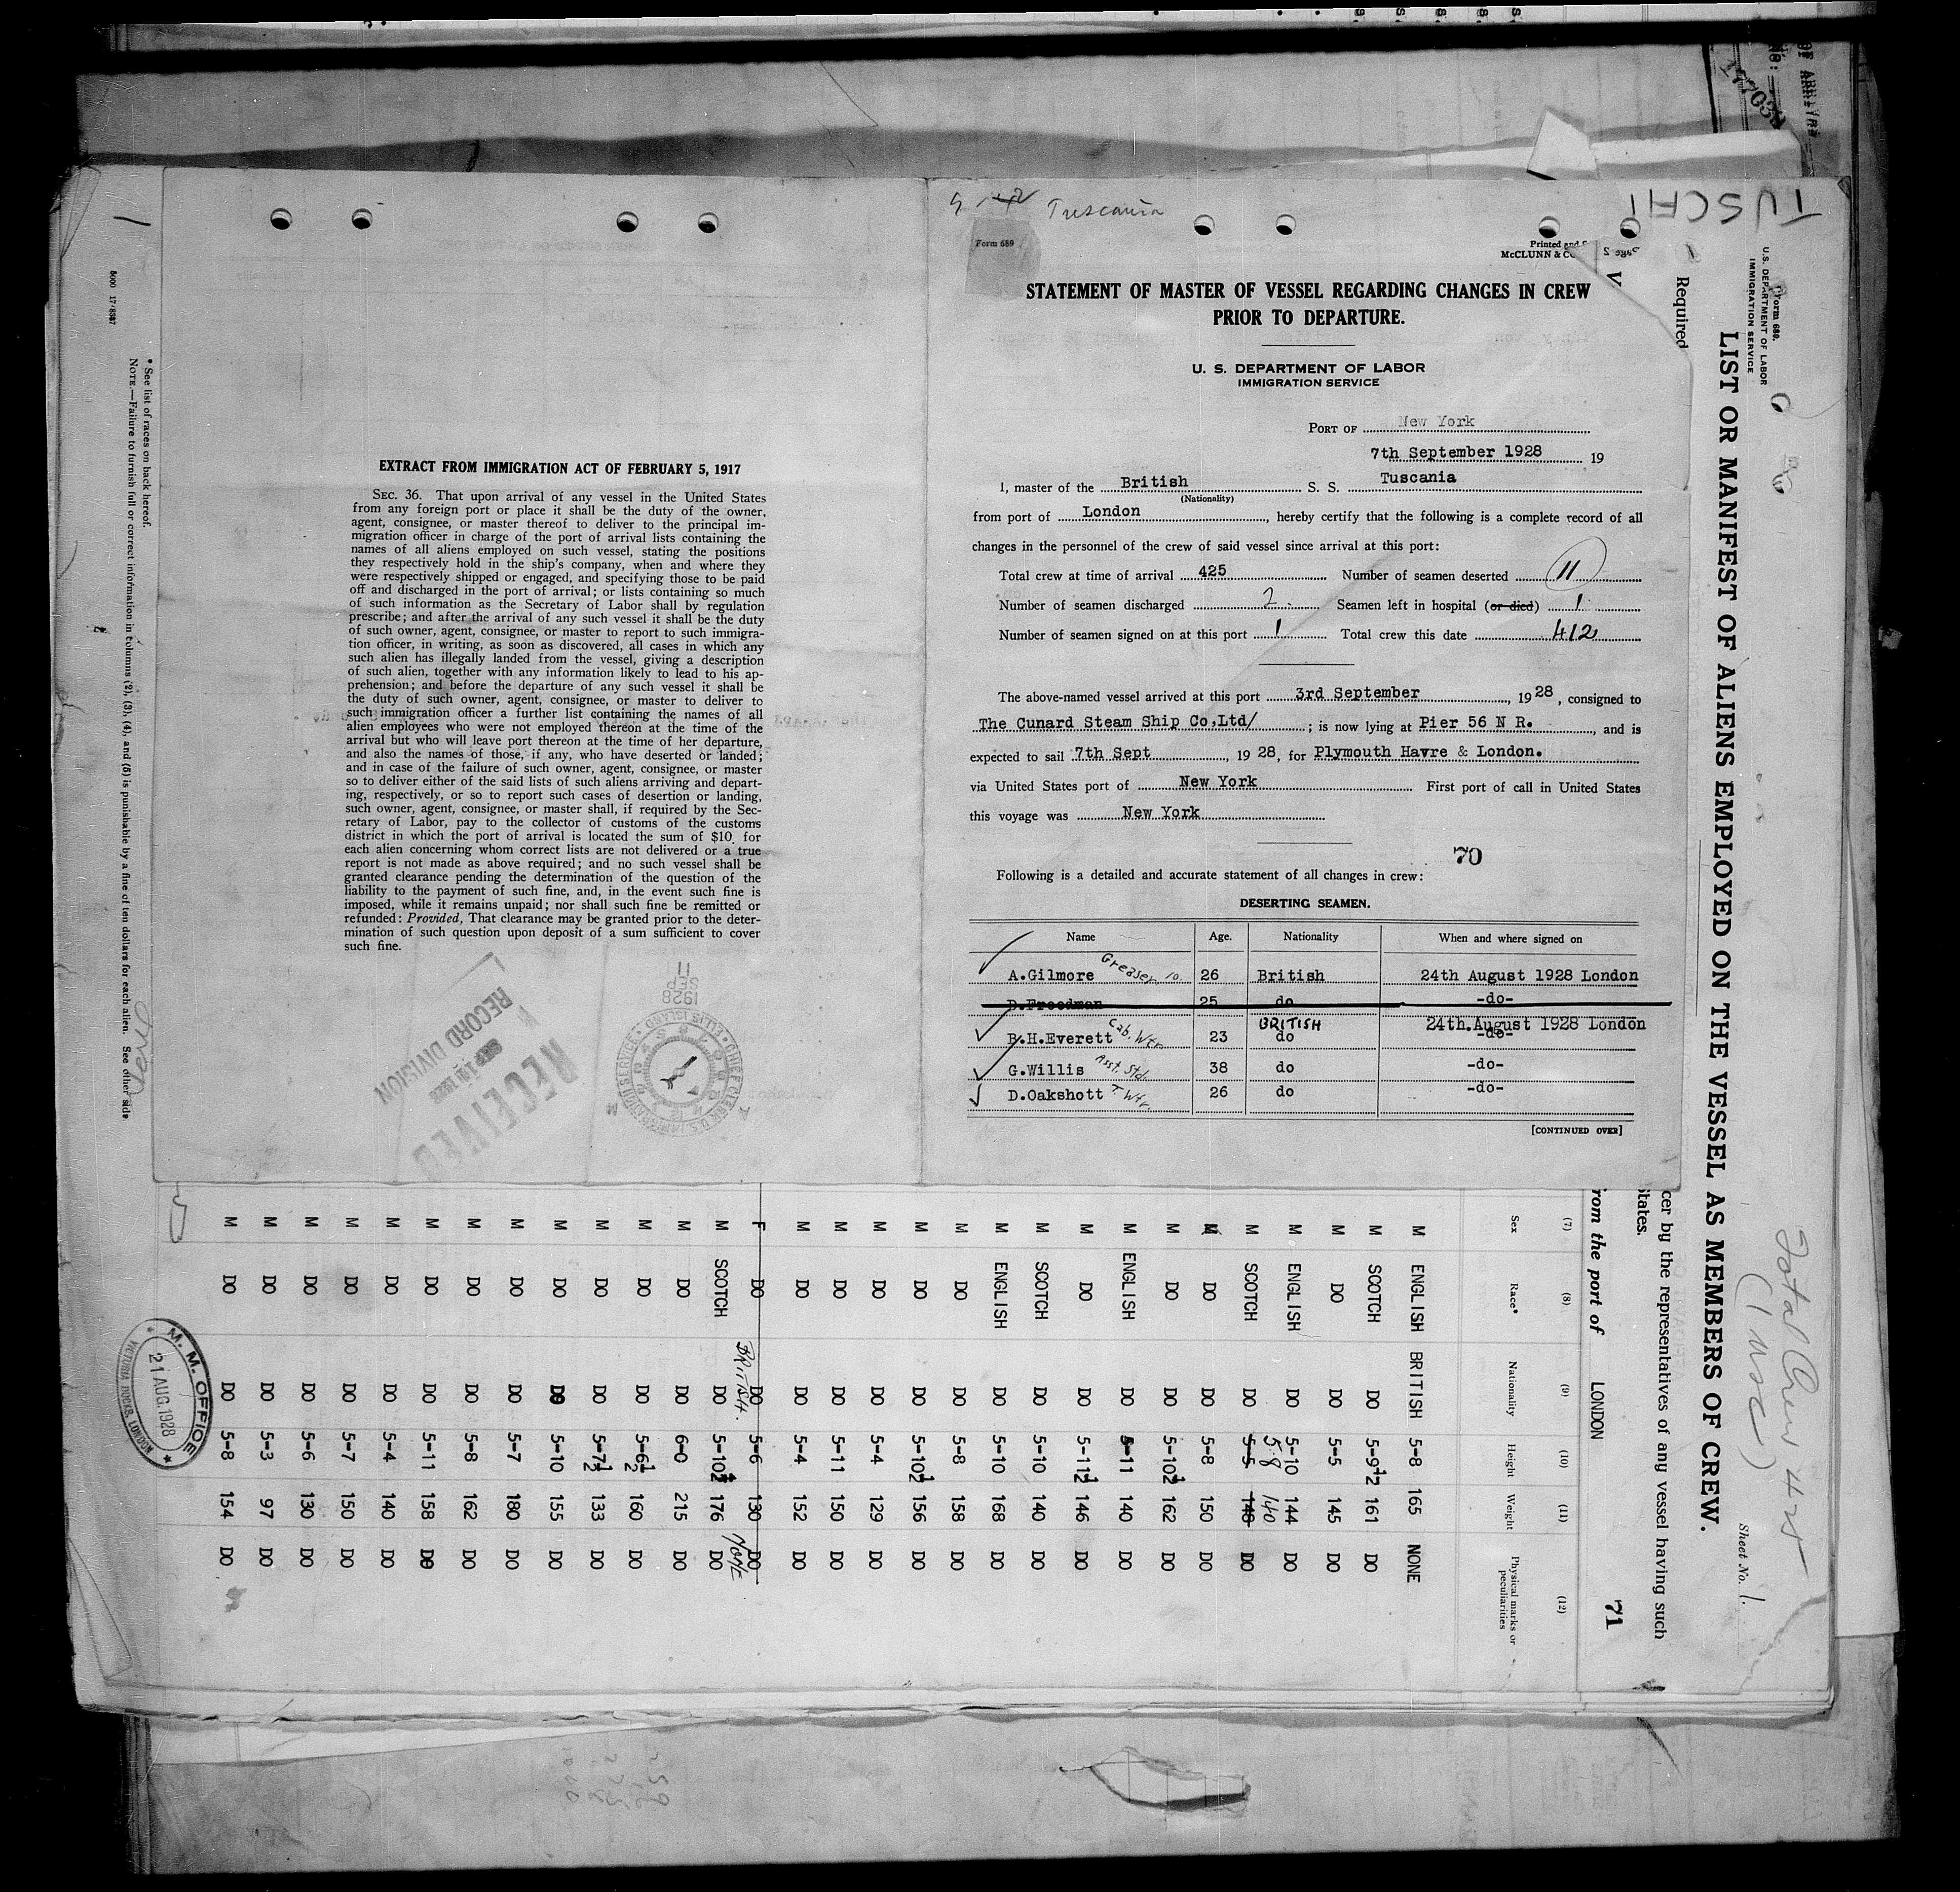 Tuscania
Form 689
Printed and
McCLUNN & CO
STATEMENT OF MASTER OF VESSEL REGARDING CHANGES IN CREW
PRIOR TO DEPARTURE.
U. S. DEPARTMENT OF LABOR
IMMIGRATION SERVICE
PORT OF New York
7th September 1928 19
I, master of the British S. S. Tuscania
(Nationality)
from port of London, hereby certify that the following is a complete record of all
changes in the personnel of the crew of said vessel since arrival at this port:
Total crew at time of arrival 425 Number of seamen deserted 11
Number of seamen discharged 2 Seamen left in hospital (or died) 1
Number of seamen signed on at this port 1 Total crew this date 412
The above-named vessel arrived at this port 3rd September, 1928, consigned to
The Cunard Steam Ship Co,Ltd/; is now lying at Pier 56 N R., and is
expected to sail 7th Sept, 1928, for Plymouth Havre & London.
via United States port of New York First port of call in United States
this voyage was New York
70
Following is a detailed and accurate statement of all changes in crew:
DESERTING SEAMEN.
Name Age. Nationality When and where signed on
A.Gilmore Greaser 10. 26 British 24th August 1928 London
D.Freedman 25 do -do-
BRITISH 24th.August 1928 London
B.H.Everett Cab. Wtr. 23 do -do-
G.Willis Asst. Std. 38 do -do-
D.Oakshott T. Wtr. 26 do -do-
[CONTINUED OVER]
EXTRACT FROM IMMIGRATION ACT OF FEBRUARY 5, 1917
SEC. 36. That upon arrival of any vessel in the United States
from any foreign port or place it shall be the duty of the owner,
agent, consignee, or master thereof to deliver to the principal im-
migration officer in charge of the port of arrival lists containing the
names of all aliens employed on such vessel, stating the positions
they respectively hold in the ship's company, when and where they
were respectively shipped or engaged, and specifying those to be paid
off and discharged in the port of arrival; or lists containing so much
of such information as the Secretary of Labor shall by regulation
prescribe; and after the arrival of any such vessel it shall be the duty
of such owner, agent, consignee, or master to report to such immigra-
tion officer, in writing, as soon as discovered, all cases in which any
such alien has illegally landed from the vessel, giving a description
of such alien, together with any information likely to lead to his ap-
prehension; and before the departure of any such vessel it shall be
the duty of such owner, agent, consignee, or master to deliver to
such immigration officer a further list containing the names of all
alien employees who were not employed thereon at the time of the
arrival but who will leave port thereon at the time of her departure,
and also the names of those, if any, who have deserted or landed;
and in case of the failure of such owner, agent, consignee, or master
so to deliver either of the said lists of such aliens arriving and depart-
ing, respectively, or so to report such cases of desertion or landing,
such owner, agent, consignee, or master shall, if required by the Sec-
retary of Labor, pay to the collector of customs of the customs
district in which the port of arrival is located the sum of $10 for
each alien concerning whom correct lists are not delivered or a true
report is not made as above required; and no such vessel shall be
granted clearance pending the determination of the question of the
liability to the payment of such fine, and, in the event such fine is
imposed, while it remains unpaid; nor shall such fine be remitted or
refunded: Provided, That clearance may be granted prior to the deter-
mination of such question upon deposit of a sum sufficient to cover
such fine.
RECEIVED
RECORD DIVISION
11
SEP
1928
ELLIS ISLAND
Form 689.
U.S. DEPARTMENT OF LABOR
IMMIGRATION SERVICE
Total Crew 425
Sheet No. 1.
LIST OR MANIFEST OF ALIENS EMPLOYED ON THE VESSEL AS MEMBERS OF CREW.
Required
cer by the representatives of any vessel having such
States.
rom the port of LONDON 71
(7) (8) (9) (10) (11) (12)
Sex Race* Nationality Height Weight Physical marks or peculiarities
M ENGLISH BRITISH 5-8 165 NONE
M SCOTCH DO 5-9½ 161 DO
M DO DO 5-5 145 DO
M ENGLISH DO 5-10 144 DO
5-8 140
M SCOTCH DO 5-5 148 DO
M DO DO 5-8 150 DO
M DO DO 5-10½ 162 DO
M ENGLISH DO 5-11 140 DO
M DO DO 5-11½ 146 DO
M SCOTCH DO 5-10 140 DO
M ENGLISH DO 5-10 168 DO
M DO DO 5-8 158 DO
M DO DO 5-10½ 156 DO
M DO DO 5-4 129 DO
M DO DO 5-11 150 DO
M DO DO 5-4 152 DO
F DO DO 5-6 130 DO
BRITISH. NONE
M SCOTCH DO 5-10½ 176 DO
M DO DO 6-0 215 DO
M DO DO 5-6½ 160 DO
M DO DO 5-7½ 133 DO
M DO DO 5-10 155 DO
M DO DO 5-7 180 DO
M DO DO 5-8 162 DO
M DO DO 5-11 158 DO
M DO DO 5-4 140 DO
M DO DO 5-7 150 DO
M DO DO 5-6 130 DO
M DO DO 5-3 97 DO
M DO DO 5-8 154 DO
M. M. OFFICE
21 AUG. 1928
VICTORIA DOCKS, LONDON
* See list of races on back hereof.
NOTE.—Failure to furnish full or correct information in columns (2), (3), (4), and (5) is punishable by a fine of ten dollars for each alien. See other side